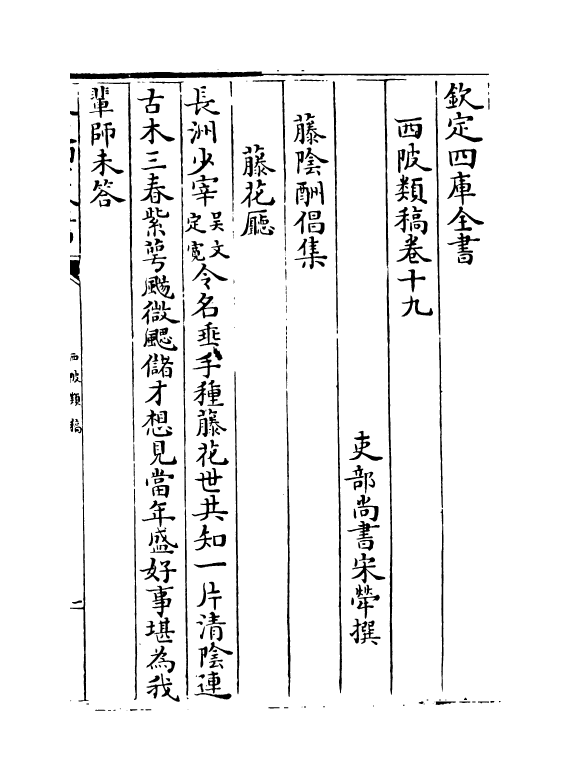 欽定四庫全書
西陂類稿卷十九
吏部尚書宋犖撰
藤陰酬倡集
藤花廳
長洲少宰吳文定寛令名垂手種藤花世共知一片清陰連
古木三春紫萼颺微颸儲才想見當年盛好事堪為我
輩師未答
西陂類稿